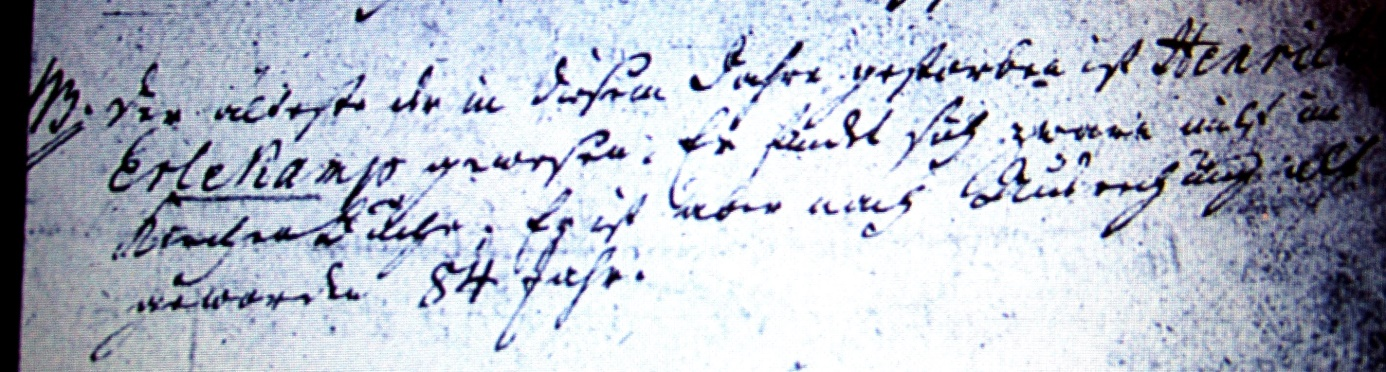 NB. Der älteste der in diesem Jahre gestorben ist Henrich
Erlekamp gewesen. Er findet sich zwar nicht im
Kirchen Buche, Er ist aber nach Ausrechnung alt
geworden 84 Jahr.